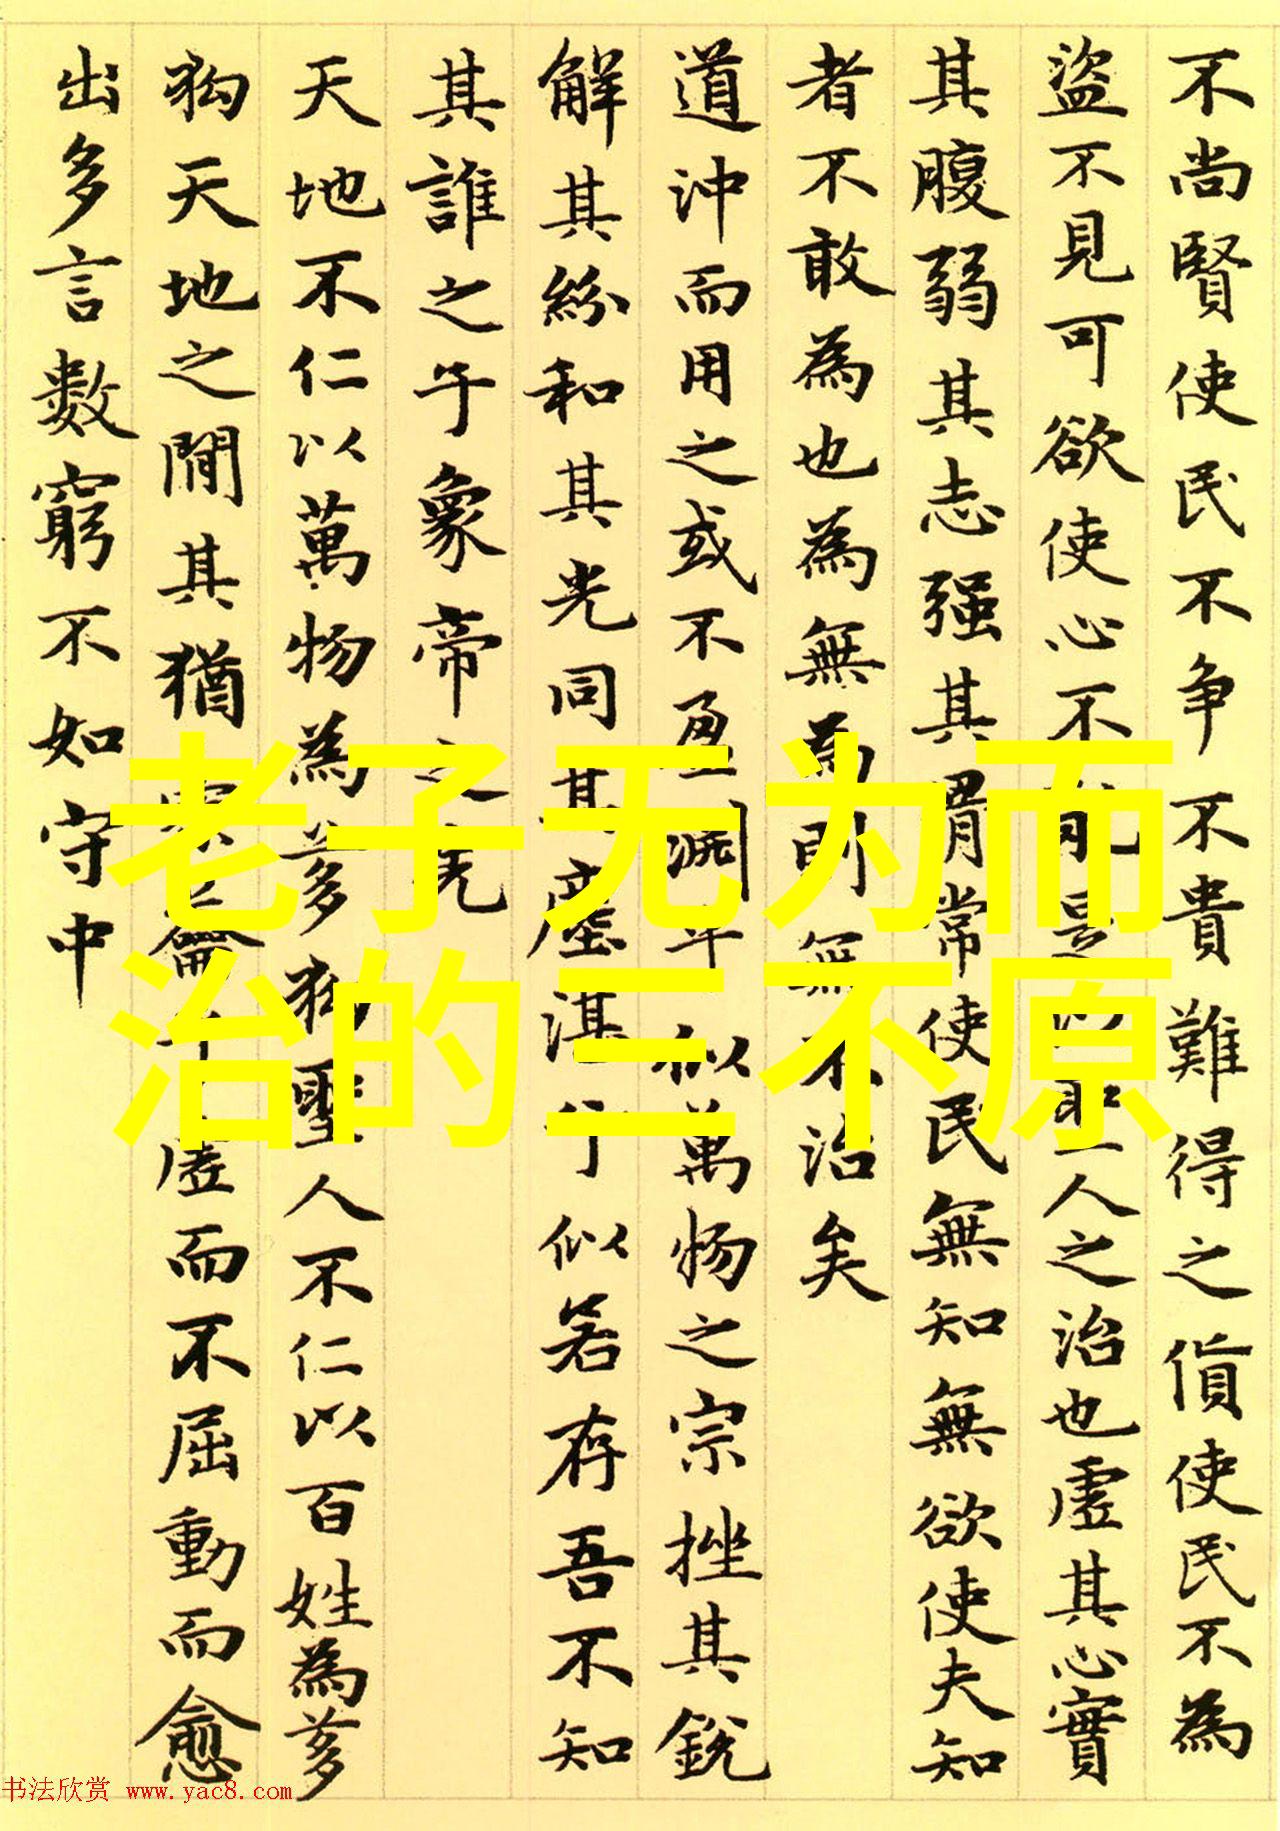 不尚賢使民不争不貴難得之貨使民不為
盜不見可欲使心不亂是以聖人之治也虛其心實
其腹弱其志强其骨常使民無知無欲使夫知
者不敢為也為無為則無不治矣
道沖而用之或不盈淵乎似萬物之宗挫其銳
解其紛和其光同其塵湛兮似若存吾不知
其誰之子象帝之先
天地不仁以萬物為芻狗聖人不仁以百姓為芻
狗天地之間其猶橐籥乎虛而不屈動而愈
出多言數窮不如守中
老子无为而
治的三不原
书法欣赏 www.yac8.com